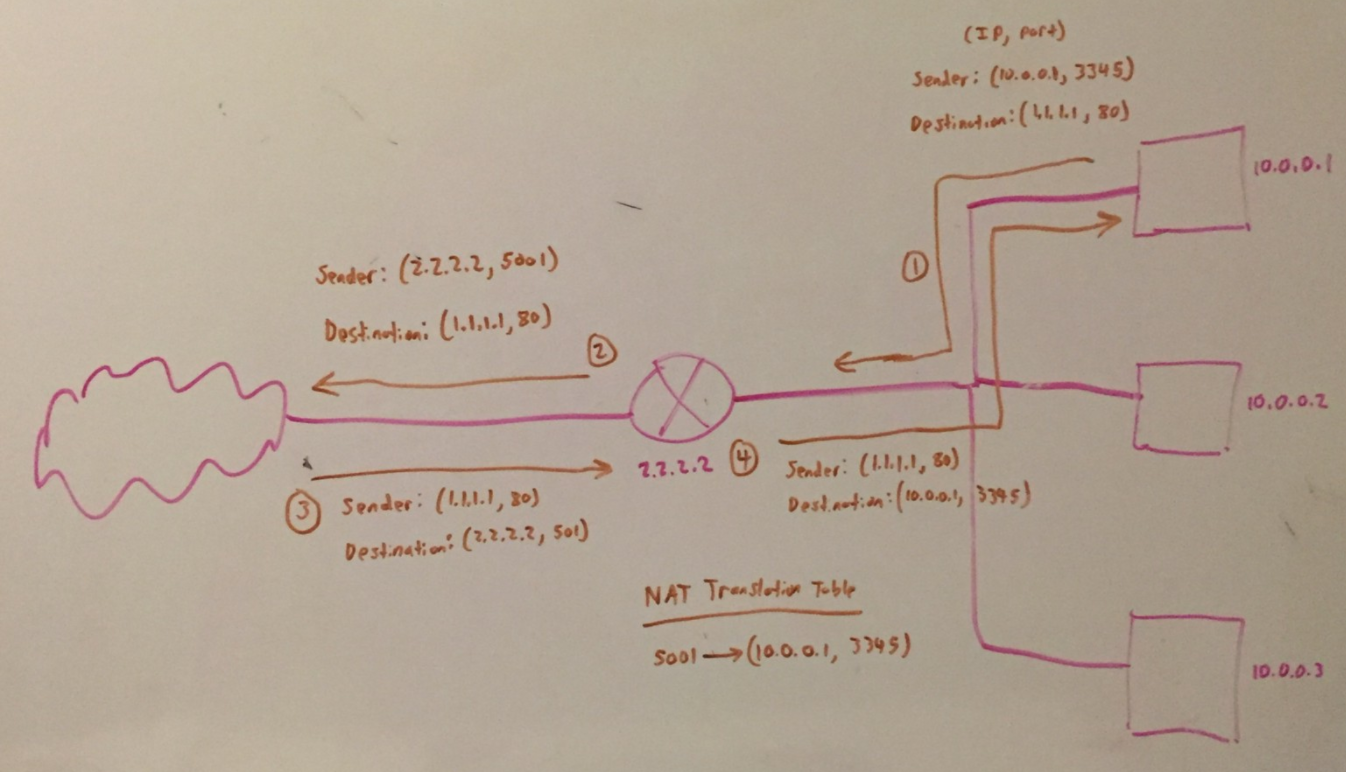 (IP, port)
Sender: (10.0.0.1, 3345)
Destination: (1.1.1.1, 80)
10.0.0.1
①
Sender: (2.2.2.2, 5001)
Destination: (1.1.1.1, 80)
②
10.0.0.2
2.2.2.2
④
Sender: (1.1.1.1, 80)
Destination: (10.0.0.1, 3345)
③
Sender: (1.1.1.1, 80)
Destination: (2.2.2.2, 501)
NAT Translation Table
5001 → (10.0.0.1, 3345)
10.0.0.3